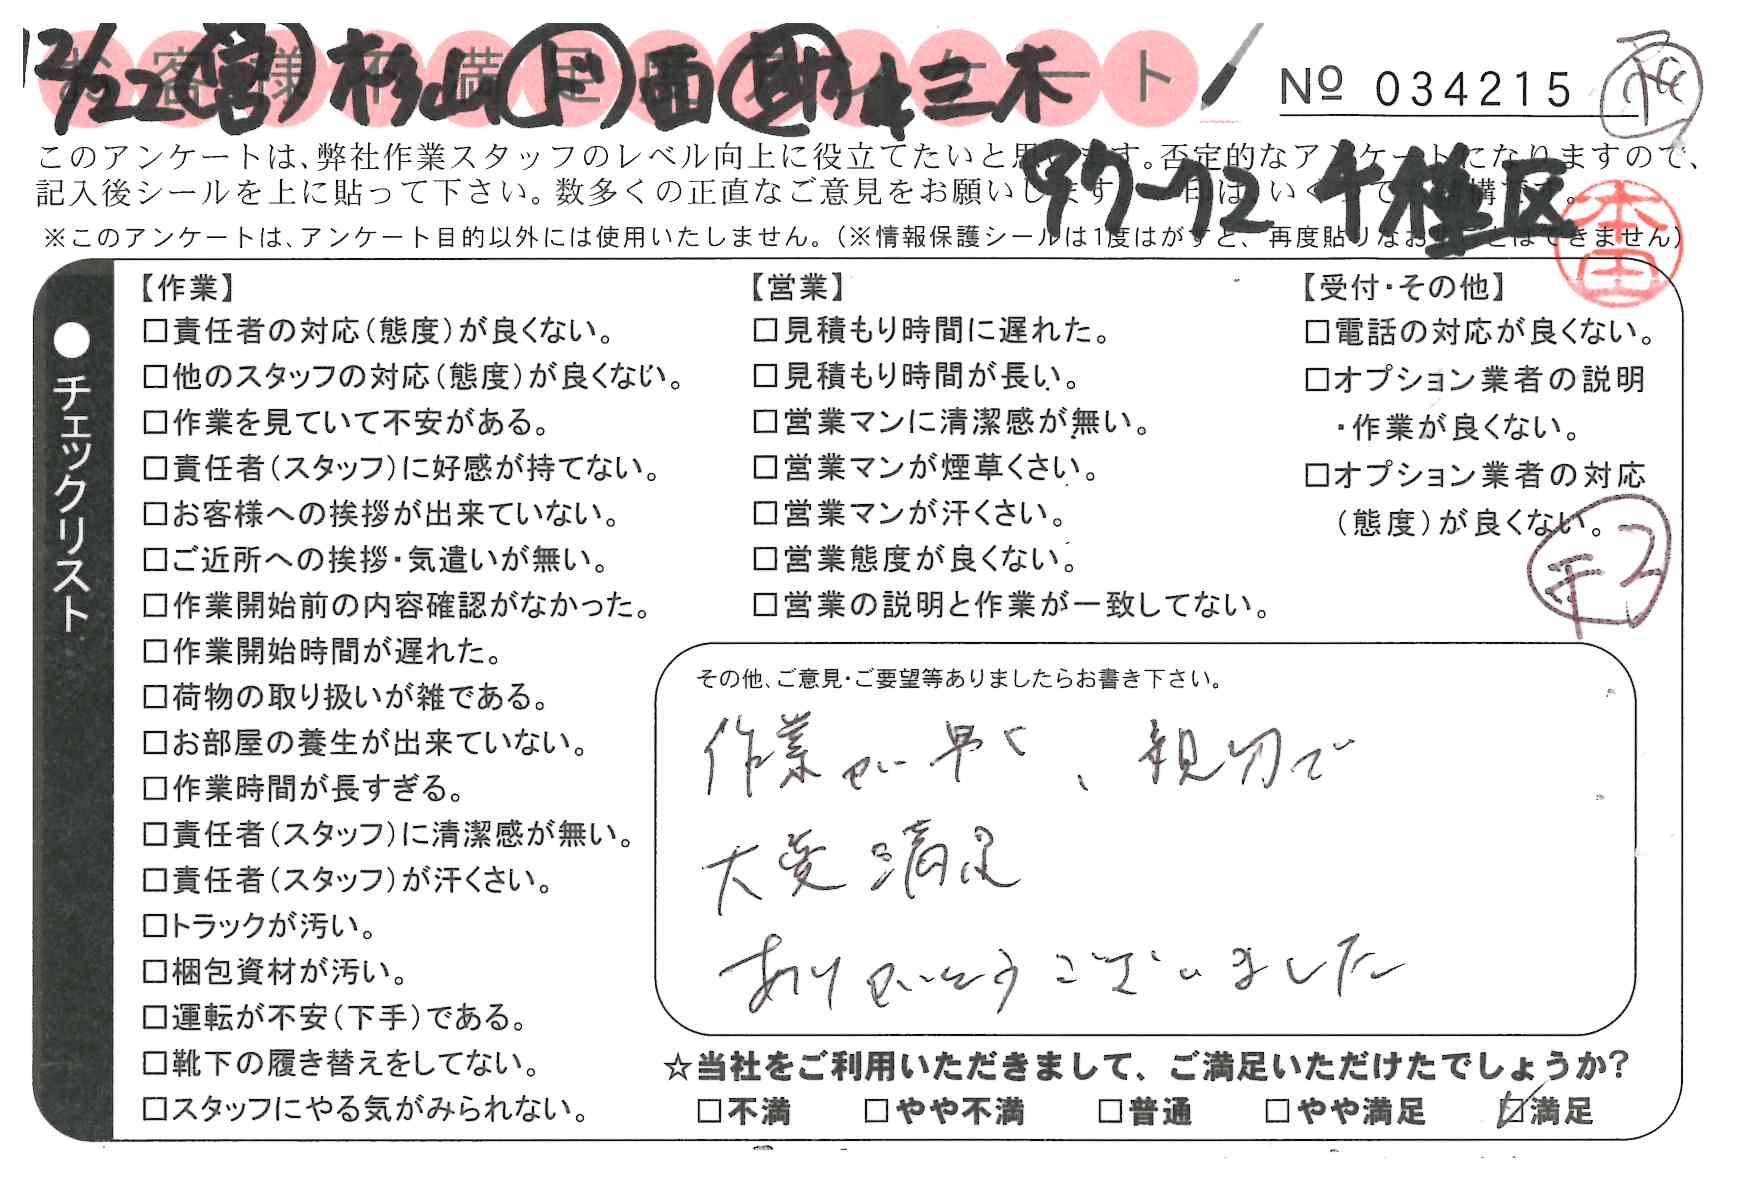 お客様不満足度アンケート
12/22 宮 杉山 ド 西 三木
№ 034215
このアンケートは、弊社作業スタッフのレベル向上に役立てたいと思います。否定的なアンケートになりますので、
記入後シールを上に貼って下さい。数多くの正直なご意見をお願いします
97-72 千種区
※このアンケートは、アンケート目的以外には使用いたしません。(※情報保護シールは1度はがすと、再度貼りなおすことはできません)
本田
●チェックリスト
【作業】
□責任者の対応(態度)が良くない。
□他のスタッフの対応(態度)が良くない。
□作業を見ていて不安がある。
□責任者(スタッフ)に好感が持てない。
□お客様への挨拶が出来ていない。
□ご近所への挨拶・気遣いが無い。
□作業開始前の内容確認がなかった。
□作業開始時間が遅れた。
□荷物の取り扱いが雑である。
□お部屋の養生が出来ていない。
□作業時間が長すぎる。
□責任者(スタッフ)に清潔感が無い。
□責任者(スタッフ)が汗くさい。
□トラックが汚い。
□梱包資材が汚い。
□運転が不安(下手)である。
□靴下の履き替えをしてない。
□スタッフにやる気がみられない。
【営業】
□見積もり時間に遅れた。
□見積もり時間が長い。
□営業マンに清潔感が無い。
□営業マンが煙草くさい。
□営業マンが汗くさい。
□営業態度が良くない。
□営業の説明と作業が一致してない。
【受付・その他】
□電話の対応が良くない。
□オプション業者の説明
・作業が良くない。
□オプション業者の対応
(態度)が良くない。
その他、ご意見・ご要望等ありましたらお書き下さい。
作業が早く、親切で
大変満足
ありがとうございました
☆当社をご利用いただきまして、ご満足いただけたでしょうか?
□不満 □やや不満 □普通 □やや満足 ☑満足